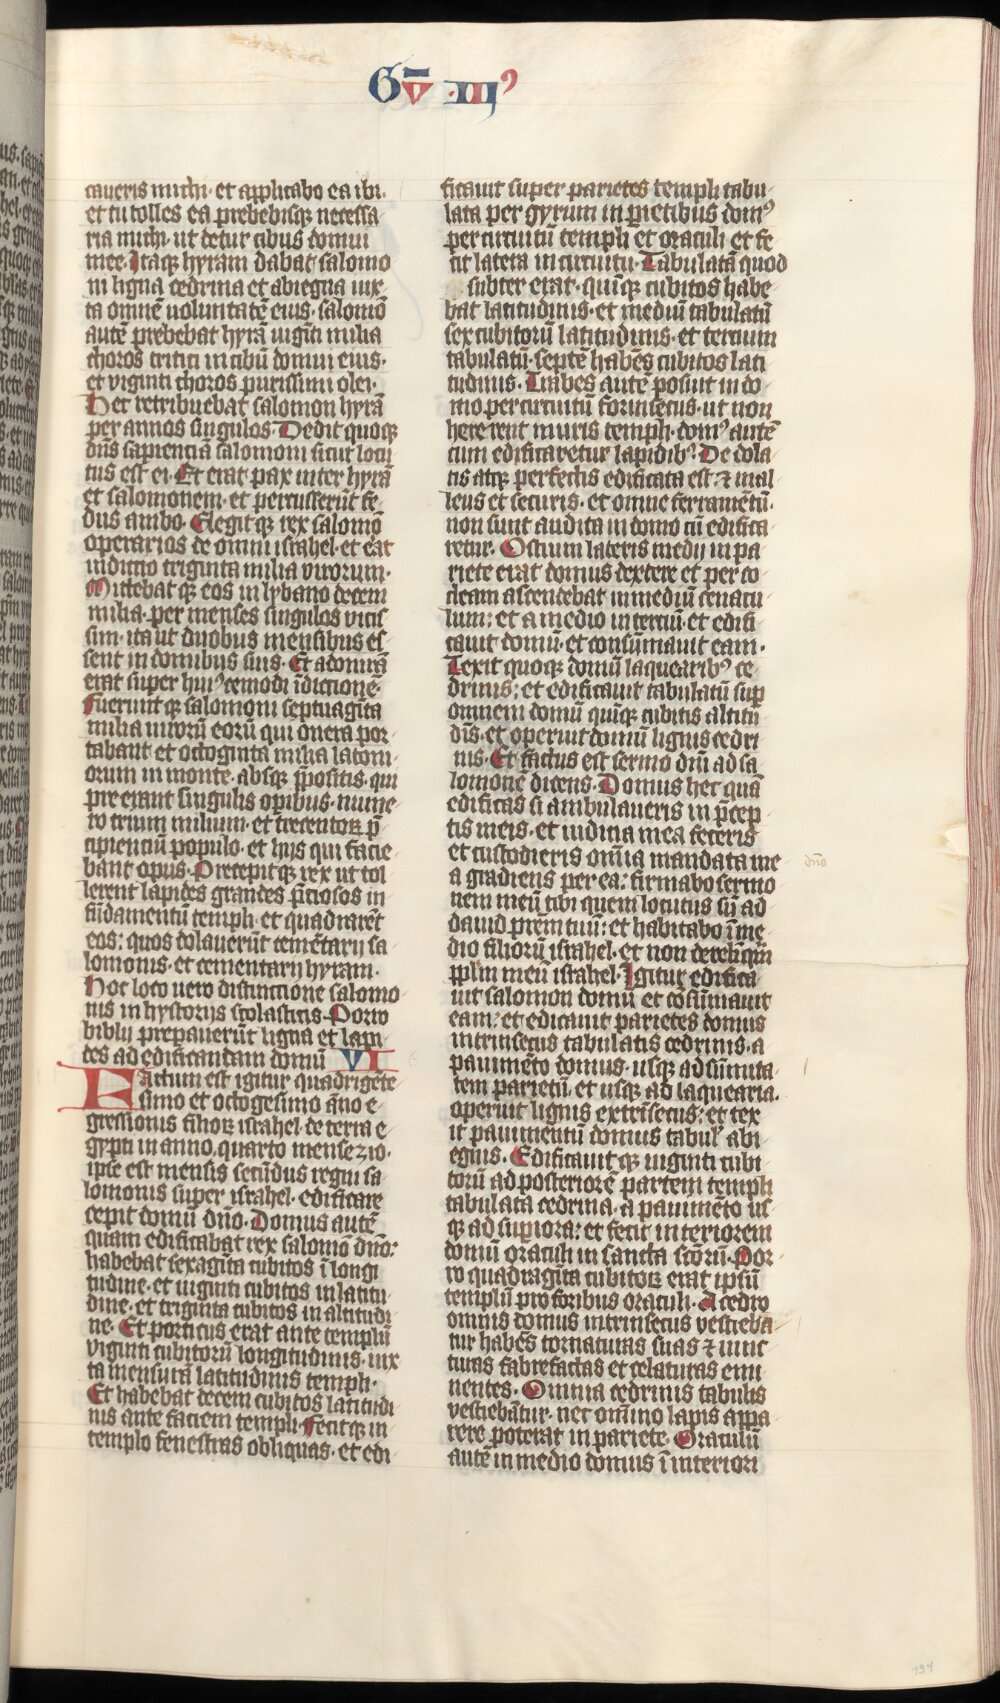 Gv̄ ·IIIꝰ
caueris michi· et applicabo ea ibi·
et tu tolles ea prebebisqꝫ necessa
ria michi· ut detur cibus domui
mee· Itaqꝫ hyram dabat salomo
ni ligna cedrina et abiegna iux
ta omnē uoluntatē eius· salomō
autē prebebat hyrā uiginti milia
choros tritici in cibū domui eius·
et viginti choros purissimi olei·
Hec retribuebat salomon hyrā
per annos singulos· Dedit quoqꝫ
dn̄s sapienciā salomoni sicut locu
tus est ei· Et erat pax inter hyrā
et salomonem· et percusserūt fe
dus ambo· Elegitqꝫ rex salomō
operarios de omni israhel· et erat
indictio triginta milia virorum·
Mittebatqꝫ eos in lybano decem
milia· per menses singulos vicis
sim· ita ut duobus mensibus es
sent in domibus suis· Et adonirā
erat super huiꝰcemodi īdictionē·
Fueruntqꝫ salomoni septuagīta
milia uirorū eorū qui onera por
tabant· et octoginta milia latom
orum in monte· absqꝫ p̄positis· qui
preerant singulis oꝑibus· nume
ro trium milium· et trecentoꝝ p̄
cipienciū populo· et hijs qui facie
bant opus· Precepitqꝫ rex ut tol
lerent lapides grandes p̄ciosos in
fūdamentū templi· et quadrarēt
eos: quos dolauerūt cemētarij sa
lomonis· et cementarij hyram·
Hoc loco uero distinctione salomo
nis in hystorijs scolasticis· Porro
biblij preparauerūt ligna et lapi
des ad edificandam domū VI
Factum est igitur quadrigēte
simo et octogesimo āno e
gressionis filioꝝ israhel· de terra e
gypti in anno quarto mense zio·
ipse est mensis secūdus regni sa
lomonis super israhel· edificare
cepit domū dn̄o· Domus autē
quam edificabat rex salomō dn̄o:
habebat sexagīta cubitos ī longi
tudine· et uiginti cubitos in latitu
dine· et triginta cubitos in altitudi
ne· Et porticus erat ante templū
viginti cubitorū longitudinis· iux
ta mensurā latitudinis templi·
Et habebat decem cubitos latitudi
nis ante faciem templi· Fecitqꝫ in
templo fenestras obliquas· et edi
ficauit super parietes templi tabu
lata per gyrum in p̄ietibus domꝰ
per circuitū templi et oraculi et fe
cit latera in circuitu· Tabulatū quod
subter erat· quīqꝫ cubitos habe
bat latitudinis· et mediū tabulatū
sex cubitorū latitudinis· et tercium
tabulatū· septē habēs cubitos lati
tudinis· Trabes autē posuit in do
mo per circuitū forinsecus· ut non
hererent muris templi· domꝰ autē
cum edificaretur lapidibꝰ· De dola
tis atqꝫ perfectis edificata est: ⁊ mal
leus et securis· et omne ferramētū·
non sunt audita in domo cū edifica
retur· Ostium lateris medij in pa
riete erat domus dextere et per co
cleam ascendebat in mediū cenacu
lum: et a medio in terciū· et edifi
cauit domū· et consūmauit eam·
Texit quoqꝫ domū laquearibꝰ ce
drinis: et edificauit tabulatū suꝑ
omnem domū quīqꝫ cubitis altitu
dīs· et operuit domū lignis cedri
nis· Et factus est sermo dn̄i ad sa
lomonē dicens· Domus hec quā
edificas si ambulaueris in p̄cep
tis meis· et iudicia mea feceris
et custodieris om̄ia mandata me
a gradiens per ea: firmabo sermo
nem meū tibi quem locutus sū ad
dauid prēm tuū: et habitabo ī me
dio filiorū israhel· et non derelīquā
pp̄lm meū israhel· Igitur edifica
uit salomon domū et cōsūmauit
eam: et edicauit parietes domus
intrinsecus tabulatis cedrinis· a
pauimēto domus· usqꝫ ad sūmita
tem parietū· et usqꝫ ad laquearia·
operuit lignis extrīsecus: et tex
it pauimentū domus tabulꝭ abi
egnis· Edificauitqꝫ uiginti cubi
torū ad posteriorē partem templi
tabulata cedrina· a pauimēto us
qꝫ ad suꝑiora: et fecit interiorem
domū oraculi in sancta sc̄orū· Por
ro quadragīta cubitoꝝ erat ipsū
templū pro foribus oraculi· A cedro
omnis domus intrinsecus vestieba
tur habēs tornaturas suas ⁊ iunc
turas fabrefactas et celaturas emi
nentes· Omnia cedrinis tabulis
vestiebātur· nec om̄ino lapis appa
rere poterat in pariete· Oraculū
autē in medio domus ī interiori